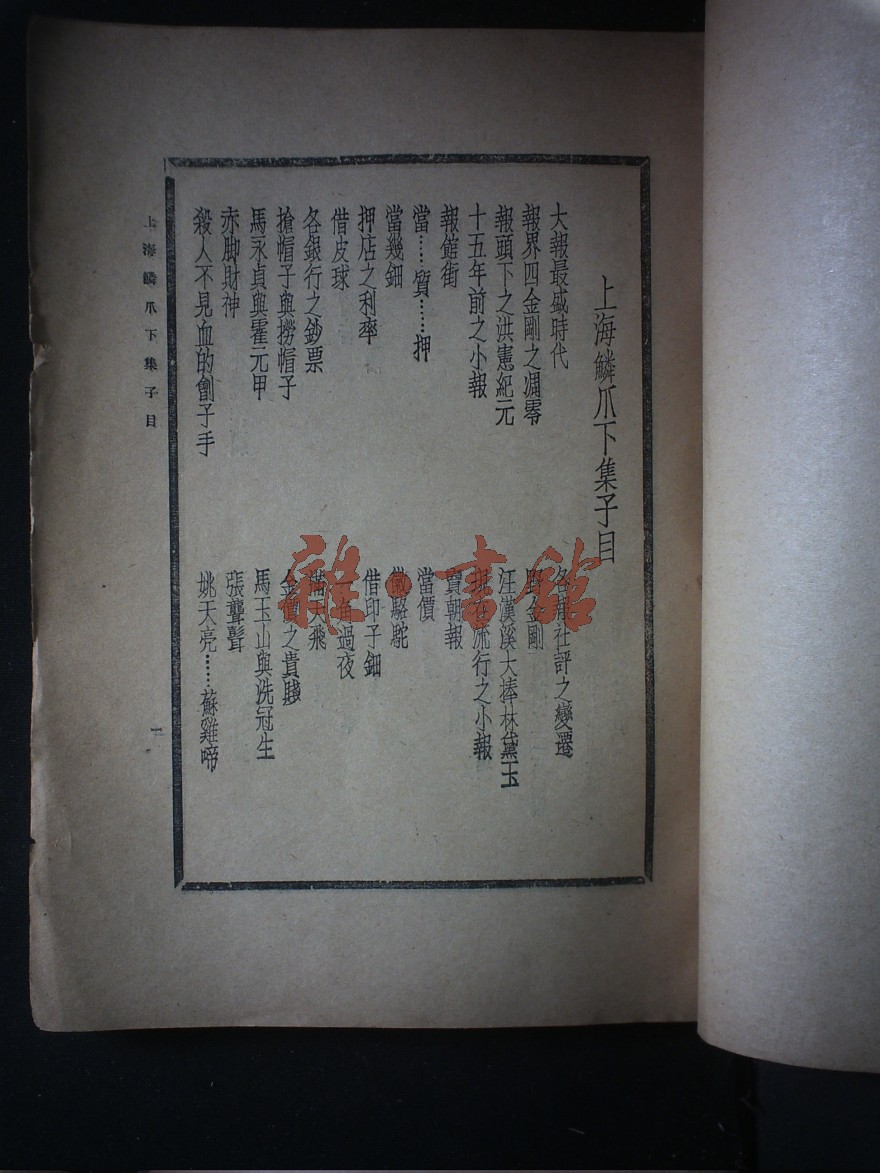 上海鱗爪下集子目
大報最盛時代
各報社評之變遷
報界四金剛之凋零
野金剛
報頭下之洪憲紀元
汪漢溪大捧林黛玉
十五年前之小報
現在流行之小報
報館街
賣朝報
當……質……押
當價
當幾鈿
徽駱駝
押店之利率
借印子鈿
借皮球
一角過夜
各銀行之鈔票
滿天飛
搶帽子與撈帽子
金價之貴賤
馬永貞與霍元甲
馬玉山與冼冠生
赤脚財神
張聾聱
殺人不見血的劊子手
姚天亮……蘇雞啼
上海鱗爪下集子目
一
雜·書館